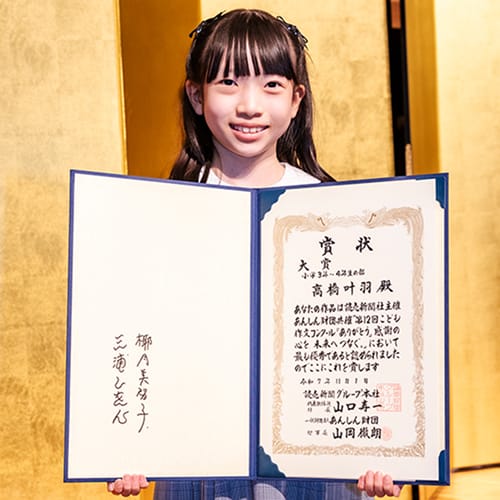 賞状
大賞
小学3年〜4年生の部
高橋叶羽 殿
あなたの作品は読売新聞社主催
あんしん財団共催"第12回こども
作文コンクール「ありがとう。感謝の
心を未来へつなぐ。」において
最も優秀であると認められました
のでここにこれを賞します
令和7年11月1日
読売新聞グループ本社
山口寿一
一般財団法人 あんしん財団
理事長 山岡徹朗